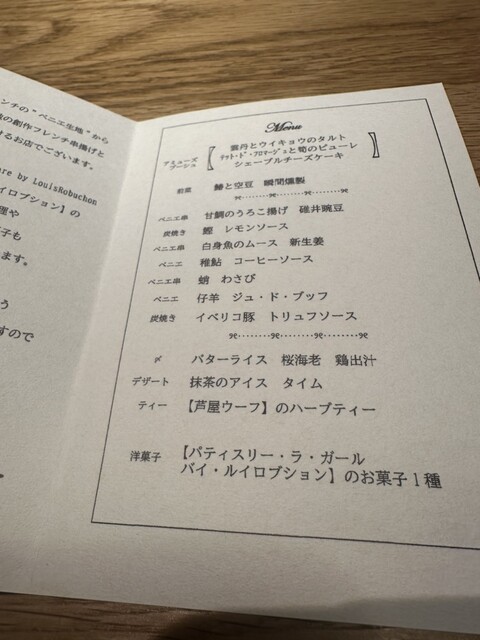 ンチの“ベニエ生地”から
の創作フレンチ串揚げと
けるお店でございます。
re by LouisRobuchon
イロブション】の
理や
子も
ます。
う
すので
Menu
アミューズ
ブーシュ
雲丹とウイキョウのタルト
テット・ド・フロマージュと筍のピューレ
シェーブルチーズケーキ
前菜 鰆と空豆 瞬間燻製
ベニエ串 甘鯛のうろこ揚げ 碓井豌豆
炭焼き 鰹 レモンソース
ベニエ串 白身魚のムース 新生姜
ベニエ 稚鮎 コーヒーソース
ベニエ串 蛸 わさび
ベニエ 仔羊 ジュ・ド・ブッフ
炭焼き イベリコ豚 トリュフソース
〆 バターライス 桜海老 鶏出汁
デザート 抹茶のアイス タイム
ティー 【芦屋ウーフ】のハーブティー
洋菓子 【パティスリー・ラ・ガール
バイ・ルイロブション】のお菓子1種